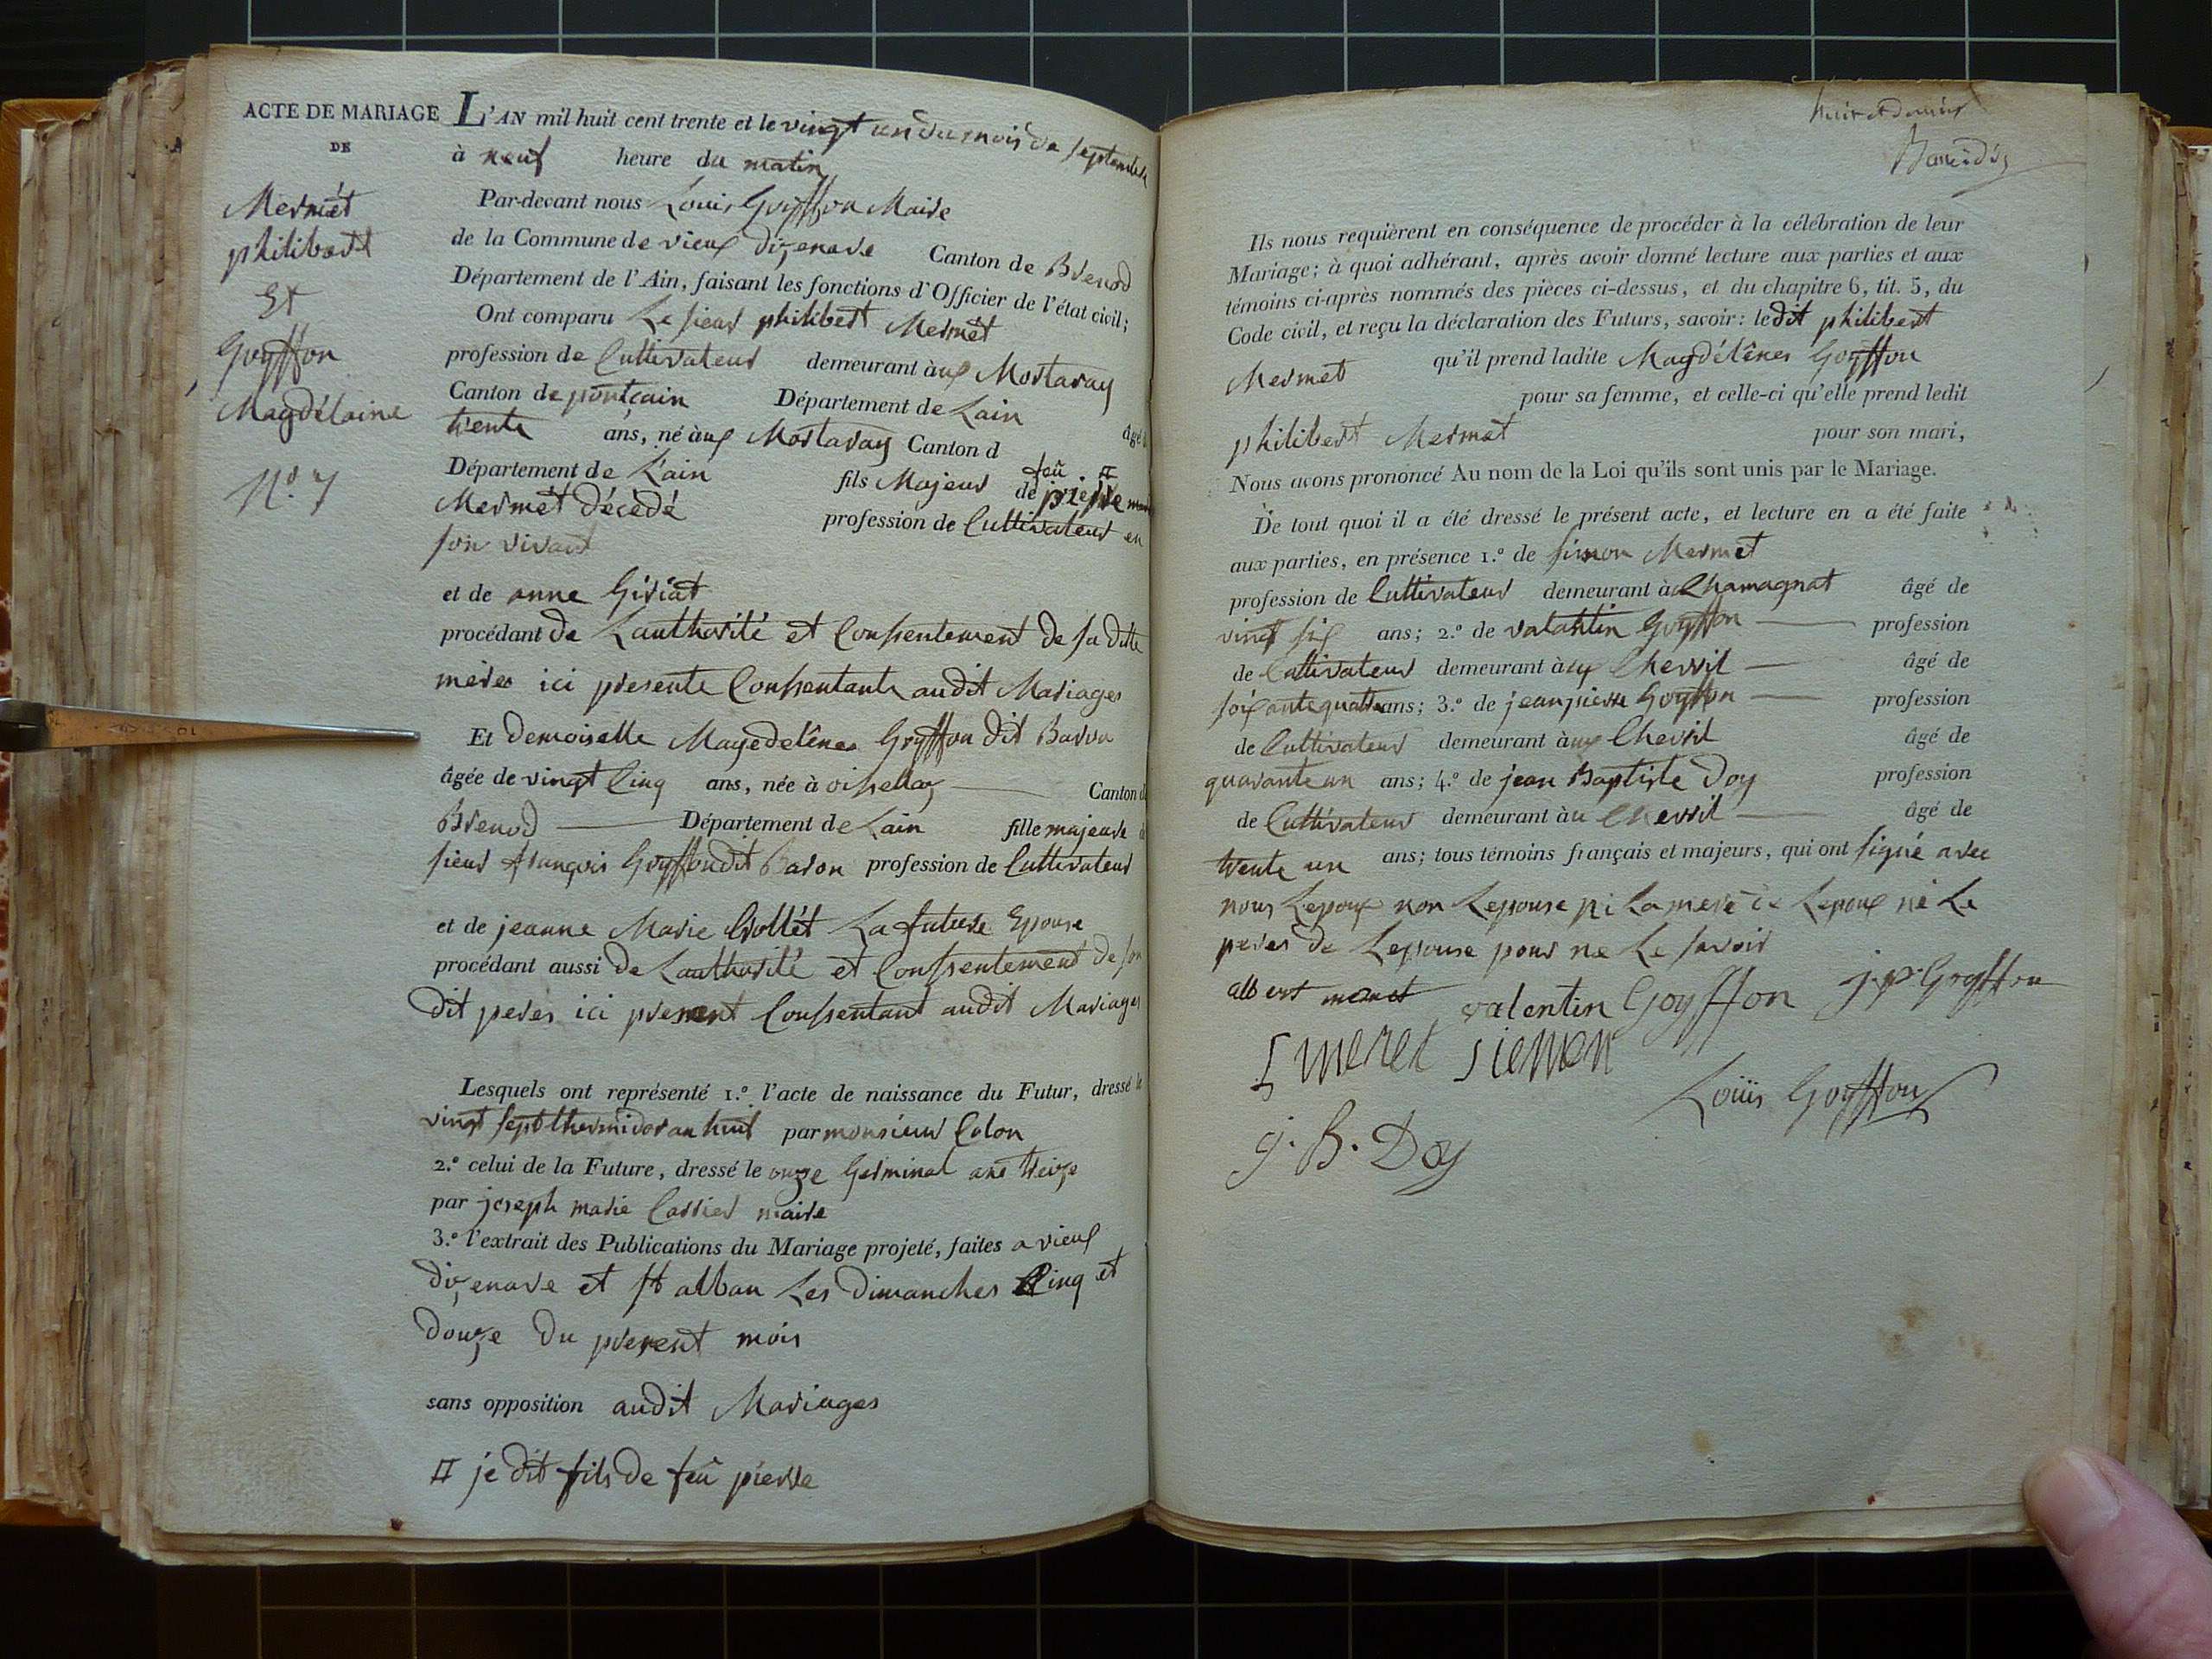 ACTE DE MARIAGE
DE
Mermét
philibert
Et
Goyffon
Magdélaine
N.º 7
L'AN mil huit cent trente et le vingt un du mois de septembre
à neuf heure du matin
Par-devant nous Louis Goyffon Maire
de la Commune de vieux dizenave Canton de Brenod
Département de l'Ain, faisant les fonctions d'Officier de l'état civil;
Ont comparu Le sieur philibert Mermét
profession de Cultivateur demeurant àux Mortaray
Canton de pontdain Département de Lain âgé d
trente ans, né àux Mortaray Canton d
Département de L'ain fils Majeur de feû pierre
Mermét décédé profession de Cultivateur en
son vivant
et de anne Giriat
procédant de Lauthorité et Consentement de sa ditte
merer ici presente Consentante audit Mariages
Et demoiselle Magedelêner Goyffon dit Baron
âgée de vingt Cinq ans, née à oisselaz Canton d
Brenod Département de Lain fille majeure d
sieur françois Goyffon dit Baron profession de Cultivateur
et de jeanne Marie Collét La future Epouse
procédant aussi de Lauthorité et Consentement de son
dit perer ici present Consentant audit Mariages
Lesquels ont représenté 1.º l'acte de naissance du Futur, dressé le
vingt sept thermidor an huit par monsieur Colon
2.º celui de la Future, dressé le onze Germinal ane treize
par joseph marie Carrier maire
3.º l'extrait des Publications du Mariage projeté, faites a vieux
dizenave et st alban Les dimanches Cinq et
douze du present mois
sans opposition audit Mariages
♯ je dit fils de feû pierre
Ils nous requièrent en conséquence de procéder à la célébration de leur
Mariage; à quoi adhérant, après avoir donné lecture aux parties et aux
témoins ci-après nommés des pièces ci-dessus, et du chapitre 6, tit. 5, du
Code civil, et reçu la déclaration des Futurs, savoir: ledit philibert
Mermet qu'il prend ladite Magdélêner Goyffon
pour sa femme, et celle-ci qu'elle prend ledit
philibert Mermet pour son mari,
Nous avons prononcé Au nom de la Loi qu'ils sont unis par le Mariage.
De tout quoi il a été dressé le présent acte, et lecture en a été faite
aux parties, en présence 1.º de simon Mermet
profession de Cultivateur demeurant à Chamagnat âgé de
vingt six ans; 2.º de valantin Goyffon profession
de Cultivateur demeurant àux Chevril âgé de
soixante quatre ans; 3.º de jeanpierre Goyffon profession
de Cultivateur demeurant àux Chevril âgé de
quarante un ans; 4.º de jean Baptiste Doy profession
de Cultivateur demeurant àu Chevril âgé de
trente un ans; tous témoins français et majeurs, qui ont signé avec
nous Lepoux non Lepouse ni La mere de Lepoux ne Le
perer de Lepouse pour ne Le savoir
valentin Goyffon j.p. Goyffon
meret siemon
Loüis Goyffon
J. B. Doy